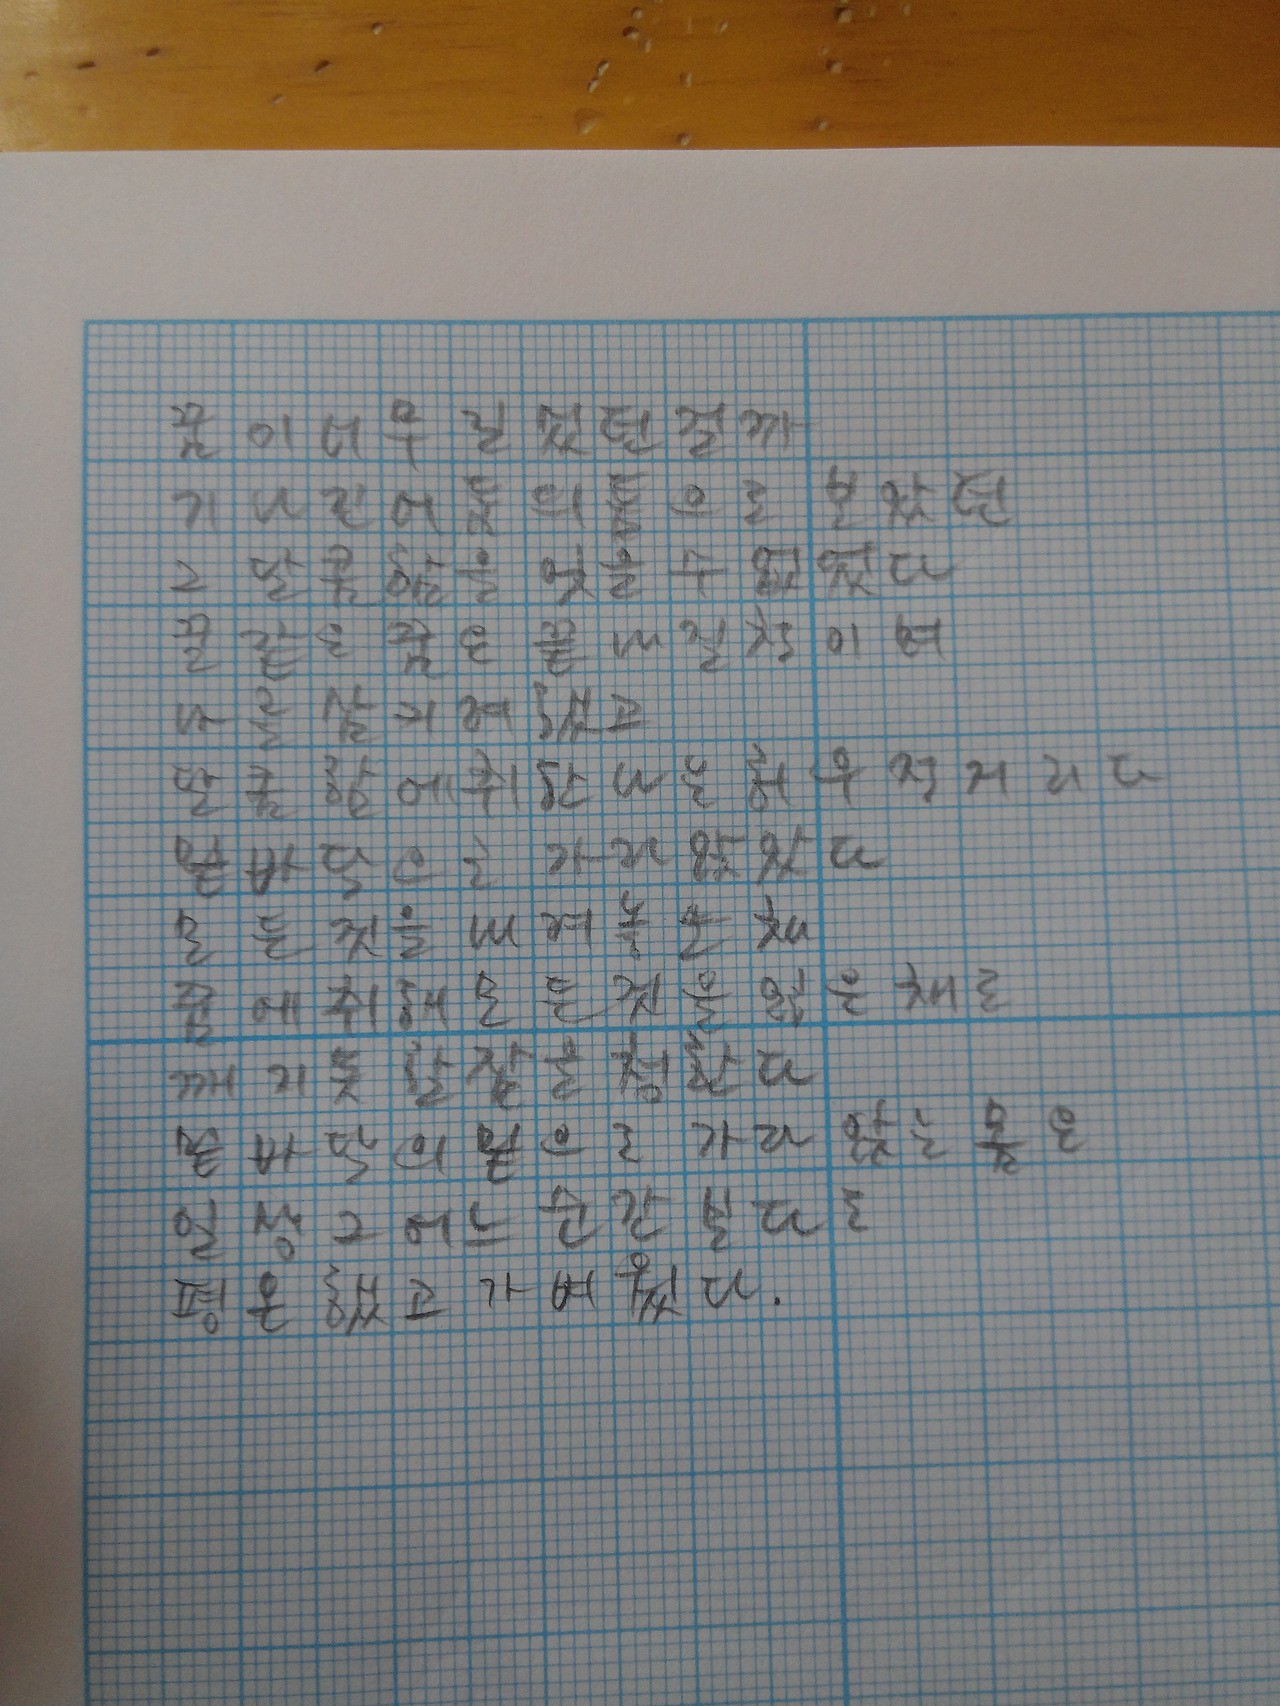 꽃이 너무
기나긴 어둠의 틈으로 보았던
그 달콤함을 잊을 수 없었다
꿀 같은 꽃은 꿈
나를 살지게 했고
달콤함에 취한 나는 허우적거리다
으로 가라앉았다
모든 것을 내려놓은 채
꿈에 취해 모든 것을 잃은 채로
깨지 못할 잠을 청했다
의 품으로 가라앉는 몸은
일상 그 어느 순간보다도
평온했고 가벼웠다.